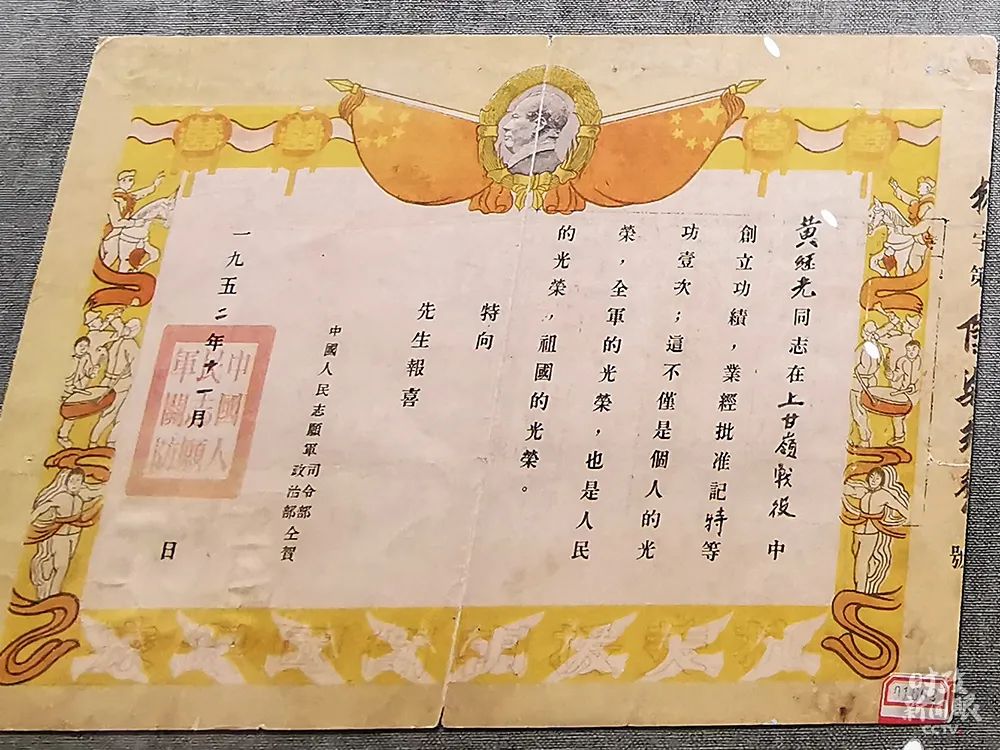 黄继光同志在上甘嶺戰役中
創立功績，業經批准記特等
功壹次；這不僅是個人的光
榮，全軍的光榮，也是人民
的光榮，祖國的光榮。
特向
先生報喜
中國人民志願軍司令部
政治部仝賀
一九五二年十一月　日
中國人
民志願
軍關防
字第
號
时政
新闻眼
CCTV